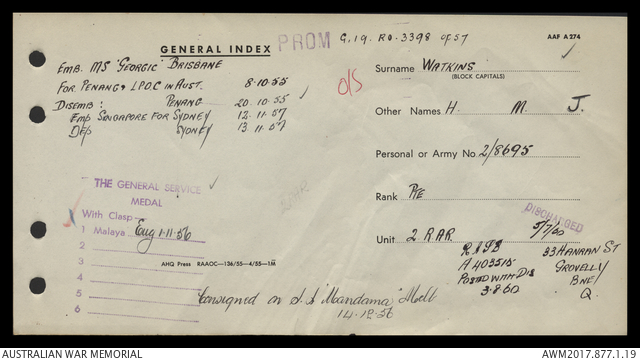 GENERAL INDEX
PROM
G.19. RO-3398 of 57
AAF A 274
EMB. MS "GEORGIC" BRISBANE
FOR PENANG & L.P.O.C in AUST. 8.10.55
DISEMB: PENANG 20.10.55
Emp SINGAPORE FOR SYDNEY 12.11.57
DEP SYDNEY 13.11.57
O/S
Surname WATKINS
(BLOCK CAPITALS)
Other Names H. M. J.
Personal or Army No. 2/8695
Rank PTE
Unit 2 RAR.
DISCHARGED
5/7/60
THE GENERAL SERVICE
MEDAL
With Clasp
1 Malaya Eng 1-11-56
2
3
4
5
6
AHQ Press RAAOC—136/55—4/55—1M
A403515
POSTED WITH DIS
3.8.60
33 HANRAN ST
GROVELLY
BNE
Q.
Consigned on S.S "Mandama" Melb
14-12-56
AUSTRALIAN WAR MEMORIAL
AWM2017.877.1.19